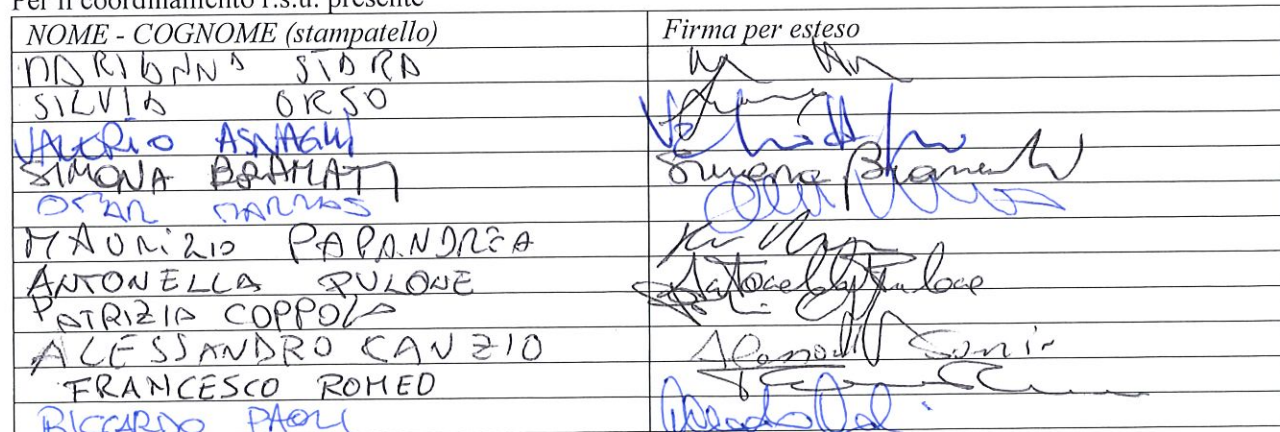 Per il coordinamento r.s.u. presente
NOME - COGNOME (stampatello) Firma per esteso
MARIANNA SIARA
SILVIA ORSO
VALERIO ASNAGHI
SIMONA BRAMATI Simona Bramati
OMAR MARRAS
MAURIZIO PAPANDREA
ANTONELLA PULONE Antonella Pulone
PATRIZIA COPPOLA
ALESSANDRO CANZIO
FRANCESCO ROMEO
RICCARDO PAOLI